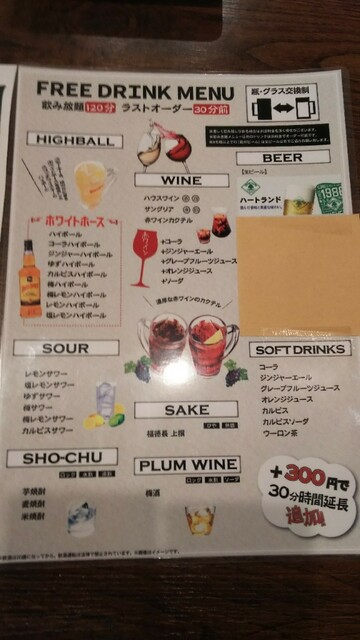 FREE DRINK MENU
飲み放題 120分 ラストオーダー 30分前
瓶・グラス交換制
HIGHBALL
ホワイトホース
ハイボール
コーラハイボール
ジンジャーハイボール
ゆずハイボール
カルピスハイボール
梅ハイボール
梅レモンハイボール
レモンハイボール
塩レモンハイボール
WINE
ハウスワイン 赤 白
サングリア 赤 白
赤ワインカクテル
赤ワイン
+コーラ
+ジンジャーエール
+グレープフルーツジュース
+オレンジジュース
+ソーダ
濃厚な赤ワインのカクテル
BEER
ハートランド
SOUR
レモンサワー
塩レモンサワー
ゆずサワー
梅サワー
梅レモンサワー
カルピスサワー
SAKE
ひや 熱燗
福徳長 上撰
SOFT DRINKS
コーラ
ジンジャーエール
グレープフルーツジュース
オレンジジュース
カルピス
カルピスソーダ
ウーロン茶
SHO-CHU
ロック 水割 湯割
芋焼酎
麦焼酎
米焼酎
PLUM WINE
ロック 水割 ソーダ
梅酒
+300円で
30分時間延長
追加!